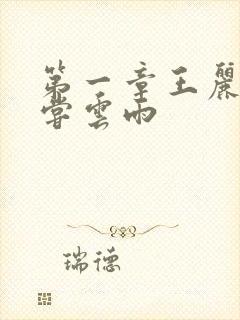 第一章王麗
嘗雲雨
瑞德